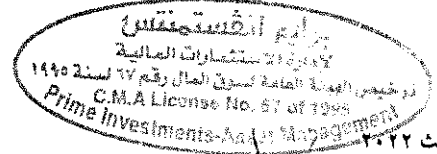 برايم انفستمنتس
لادارة الاستثمارات المالية
ترخيص الهيئة العامة لسوق المال رقم ٦٧ لسنة ١٩٩٥
C.M.A License No. 67 of 1995
Prime Investments-Asset Management
ث ٢٠٢٢